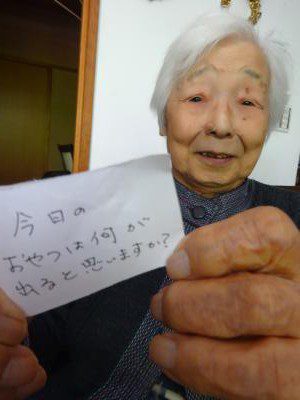 今日の
おやつは何が
出ると思いますか?